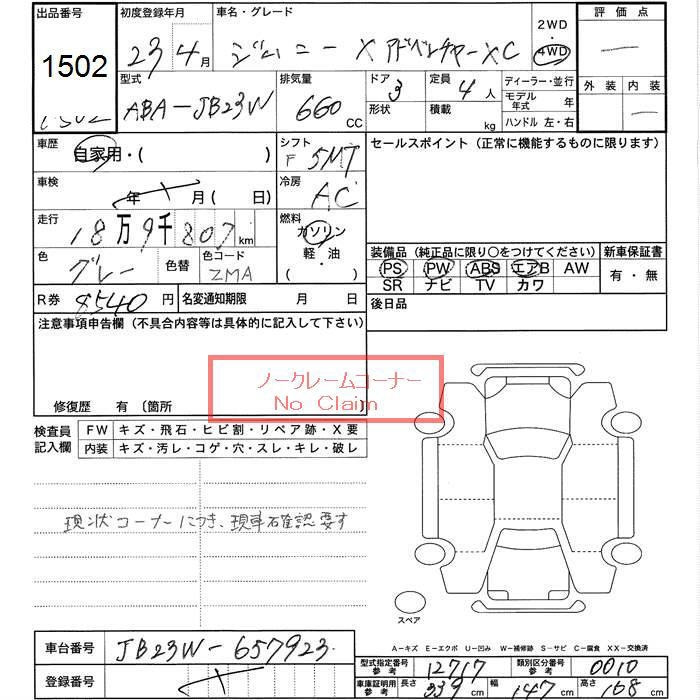 出品番号 初度登録年月 車名・グレード 2WD・4WD 評価点
1502 23年4月 ジムニー X アドベンチャー XC
型式 排気量 ドア 定員 ディーラー・並行 外装 内装
ABA-JB23W 660 CC 3 4人 モデル年式 年
形状 積載 kg ハンドル 左・右
車歴 自家用・( ) シフト F 5MT セールスポイント (正常に機能するものに限ります)
車検 年 月 ( 日) 冷房 AC
走行 18万9千807km 燃料 ガソリン・軽・油 ( )
装備品 (純正品に限り○をつけてください) 新車保証書
色 グレー 色替 色コード ZMA PS PW ABS エアB AW 有・無
SR ナビ TV カワ
R券 8540円 名変通知期限 月 日 後日品
注意事項申告欄 (不具合内容等は具体的に記入して下さい)
ノークレームコーナー
No Claim
修復歴 有 〔箇所 〕
検査員記入欄 FW キズ・飛石・ヒビ割・リペア跡・X要
内装 キズ・汚レ・コゲ・穴・スレ・キレ・破レ
現状コーナーにつき、現車確認要す
スペア
A-キズ E-エクボ U-凹み W-補修跡 S-サビ C-腐食 XX-交換済
車台番号 JB23W-657923 型式指定番号参考 12717 類別区分番号参考 0010
登録番号 車庫証明用参考 長さ 339cm 幅 147cm 高さ 168cm